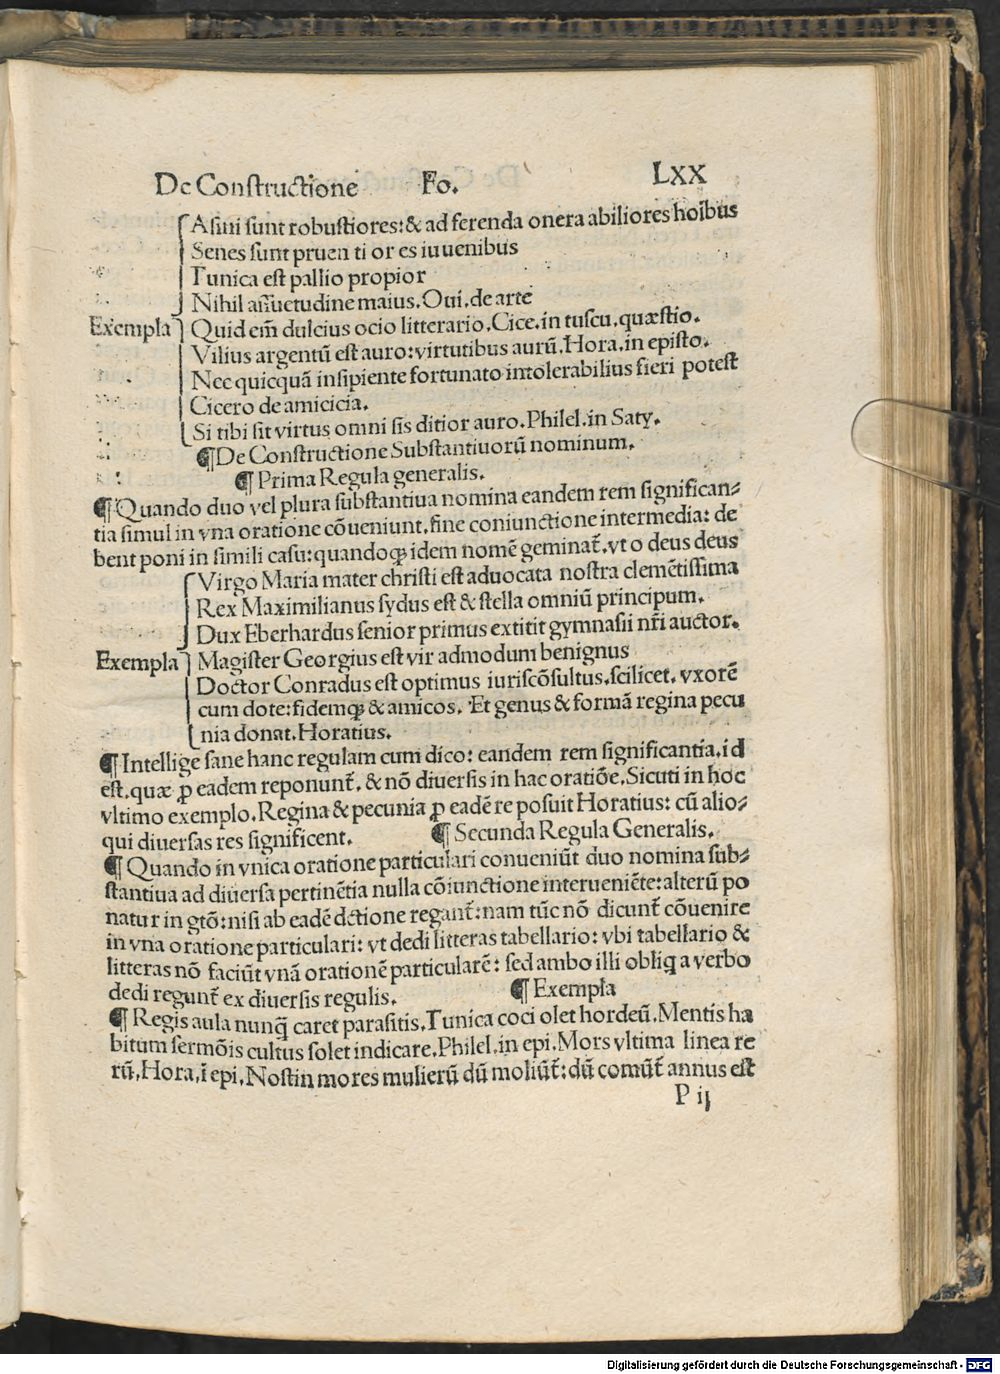 De Constructione Fo. LXX
Asini sunt robustiores: & ad ferenda onera abiliores hoībus
Senes sunt pruen ti or es iuuenibus
Tunica est pallio propior
Nihil assuetudine maius. Oui. de arte
Exempla Quid em̄ dulcius ocio litterario. Cice. in tuscu. quæstio.
Vilius argentū est auro: virtutibus aurū. Hora. in episto.
Nec quicquā insipiente fortunato intolerabilius fieri potest
Cicero de amicicia.
Si tibi sit virtus omni sis ditior auro. Philel. in Saty.
¶ De Constructione Substantiuorū nominum.
¶ Prima Regula generalis.
¶ Quando duo vel plura substantiua nomina eandem rem significan⸗
tia simul in vna oratione cōueniunt. sine coniunctione intermedia: de
bent poni in simili casu: quandoqꝫ idem nomē geminat᷑. vt o deus deus
Virgo Maria mater christi est aduocata nostra clemētissima
Rex Maximilianus sydus est & stella omniū principum.
Dux Eberhardus senior primus extitit gymnasii nr̄i auctor.
Exempla Magister Georgius est vir admodum benignus
Doctor Conradus est optimus iuriscōsultus. scilicet. vxorē
cum dote: fidemqꝫ & amicos. Et genus & formā regina pecu
nia donat. Horatius.
¶ Intellige sane hanc regulam cum dico: eandem rem significantia. i d
est. quæ ꝓ eadem reponunt᷑. & nō diuersis in hac oratiōe. Sicuti in hoc
vltimo exemplo. Regina & pecunia ꝓ eadē re posuit Horatius: cū alio⸗
qui diuersas res significent. ¶ Secunda Regula Generalis.
¶ Quando in vnica oratione particulari conueniūt duo nomina sub⸗
stantiua ad diuersa pertinētia nulla cōiunctione interueniēte: alterū po
natu r in gtō: nisi ab eadē dctione regant᷑: nam tūc nō dicunt᷑ cōuenire
in vna oratione particulari: vt dedi litteras tabellario: vbi tabellario &
litteras nō faciūt vnā orationē particularē: sed ambo illi obliq a verbo
dedi regunt᷑ ex diuersis regulis. ¶ Exempla
¶ Regis aula nunq̄ caret parasitis. Tunica coci olet hordeū. Mentis ha
bitum sermōis cultus solet indicare. Philel. in epi. Mors vltima linea re
rū. Hora. ī epi. Nostin mores mulierū dū moliūt᷑: dū comūt᷑ annus est
P ij
Digitalisierung gefördert durch die Deutsche Forschungsgemeinschaft - DFG